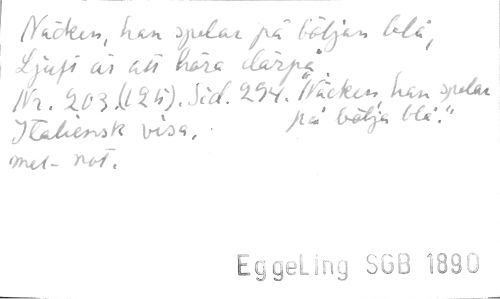 Näcken, han spelar på böljan blå,
Ljuft är att höra därpå.
Nr. 203.(125). Sid. 294. "Näcken, han spelar
på bölja blå."
Italiensk visa.
mel- not.
EggeLing SGB 1890